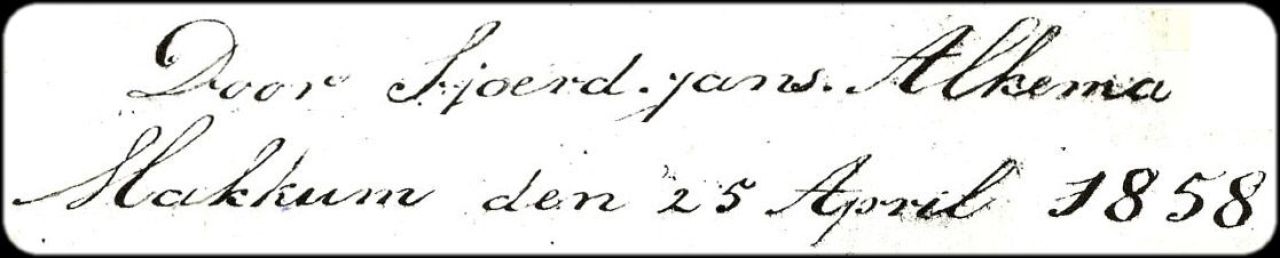 Door Sjoerd. jans. Alkema
Makkum den 25 April 1858